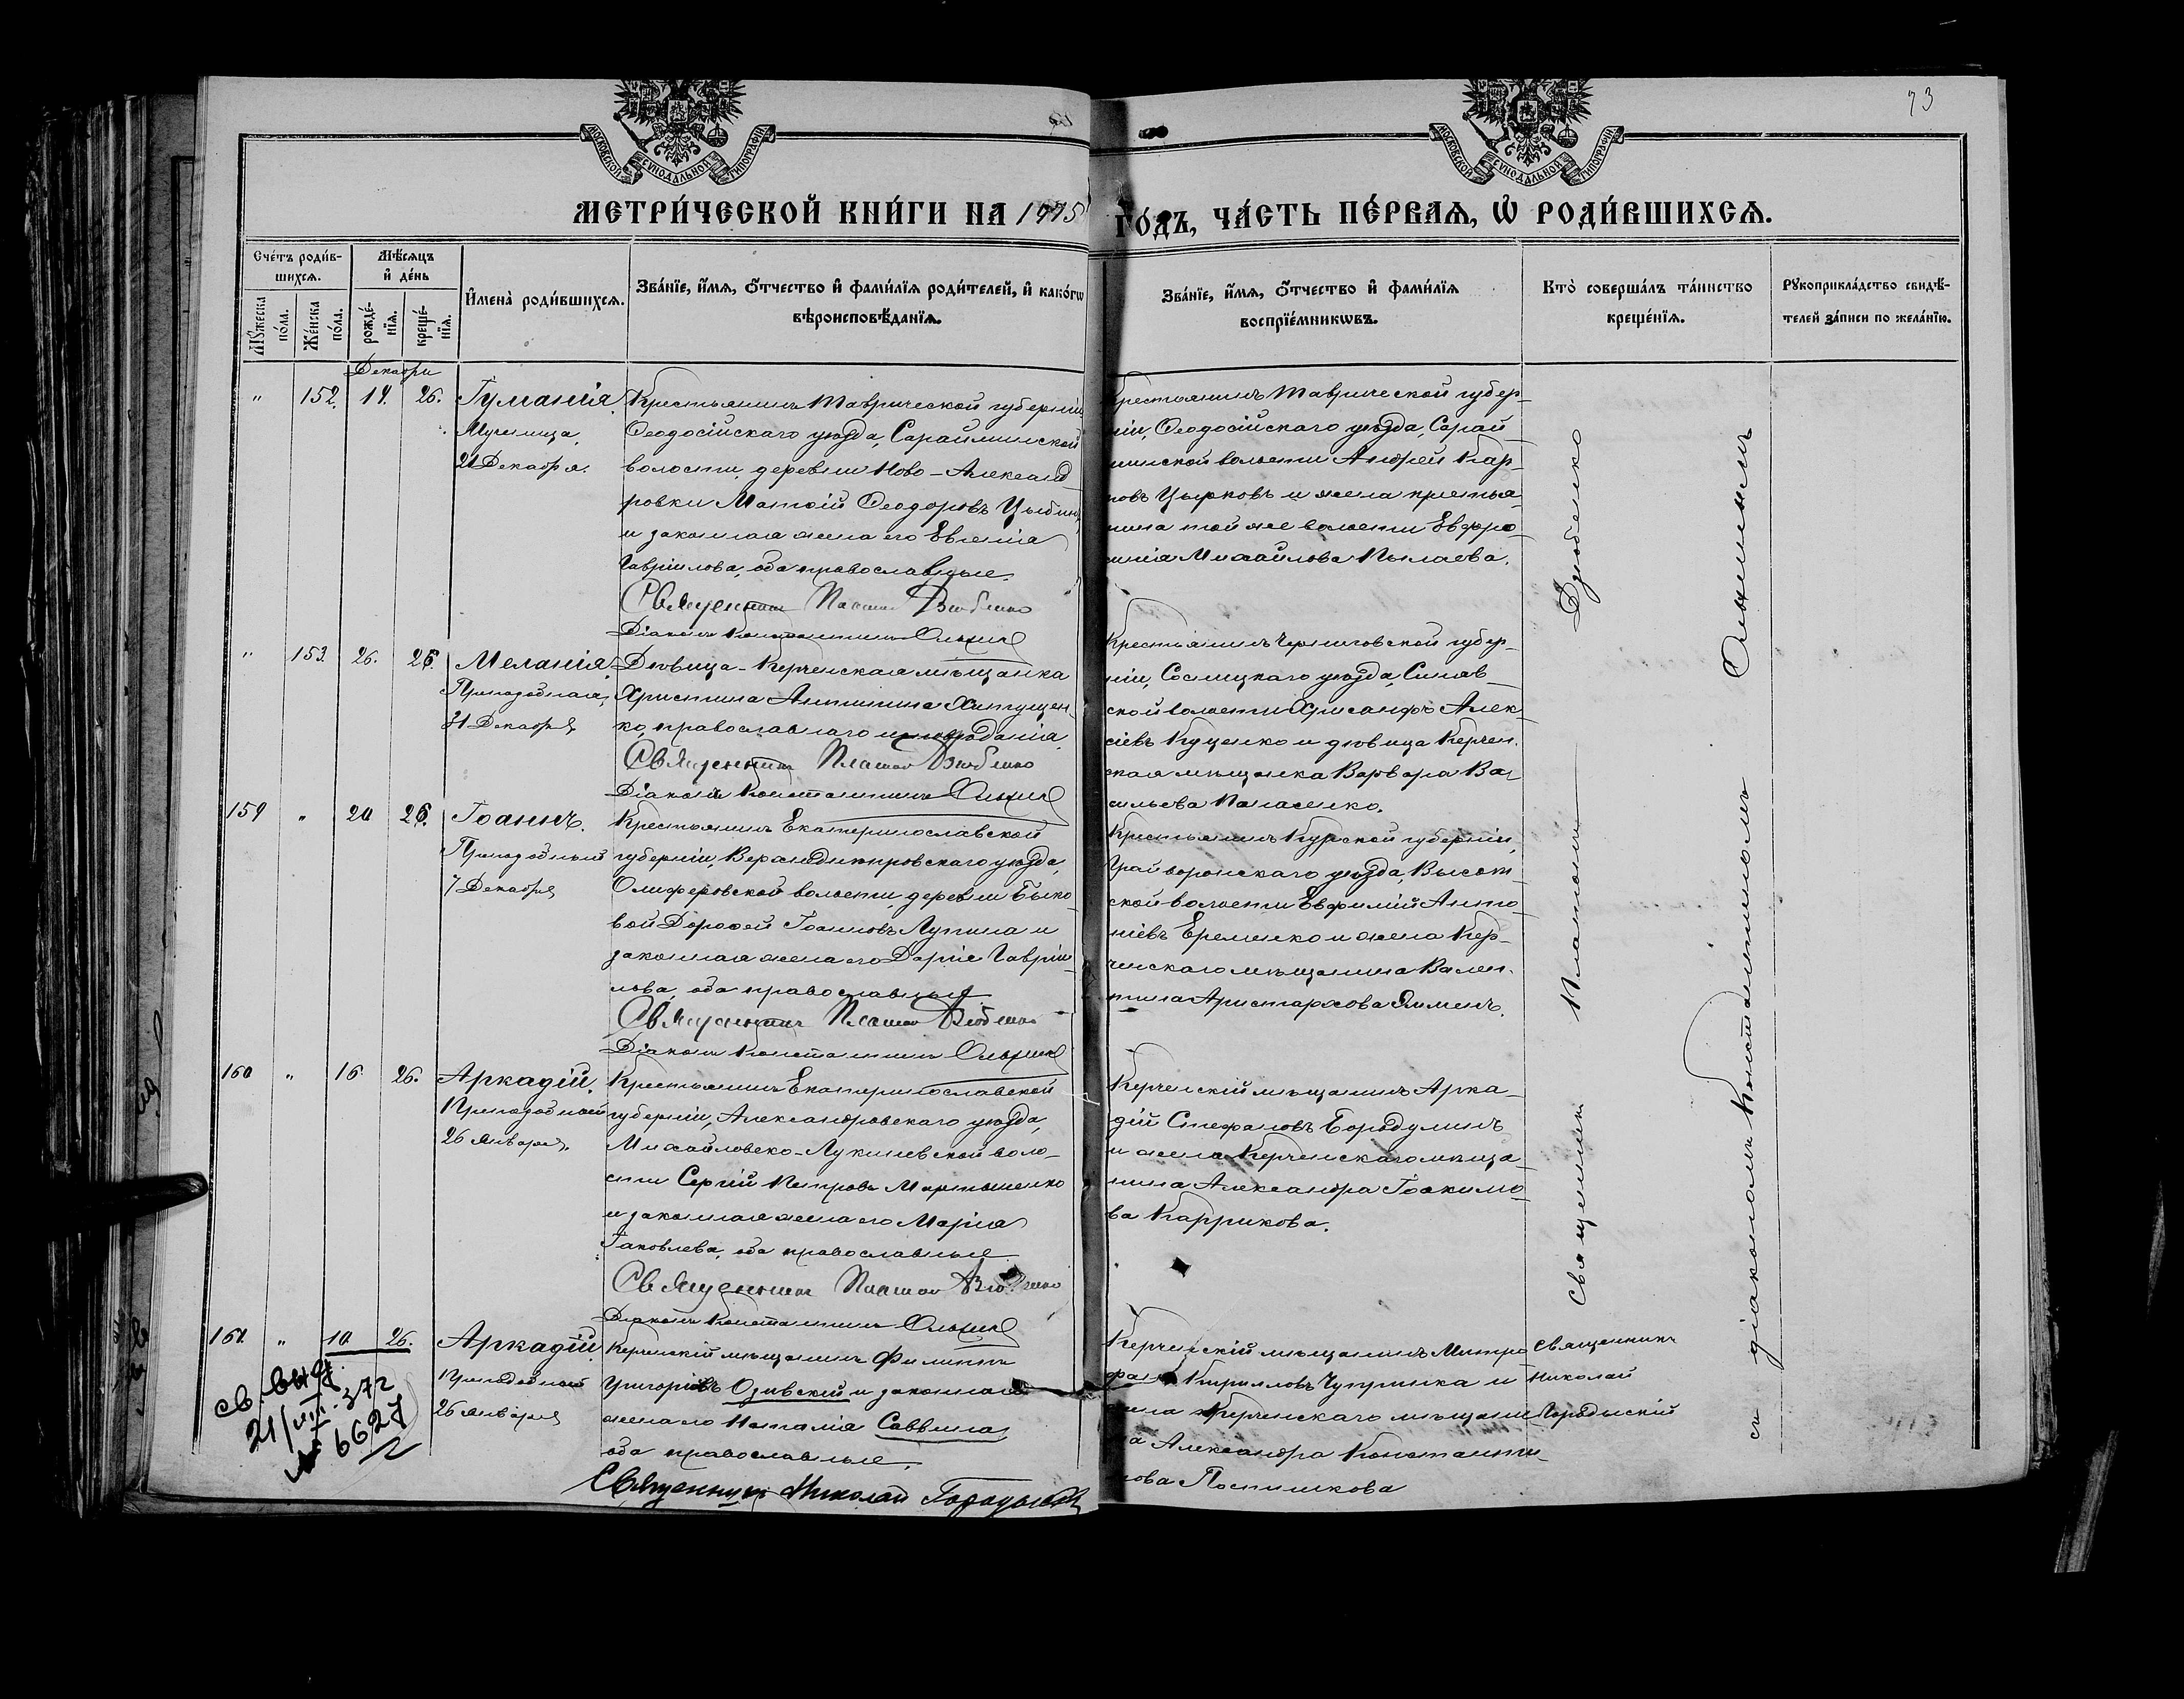 73
МОСКОВСКОЙ СѴНОДАЛЬНОЙ ТИПОГРАФІИ
МОСКОВСКОЙ СѴНОДАЛЬНОЙ ТИПОГРАФІИ
МЕТРИ́ЧЕСКОЙ КНИ́ГИ НА
ГО́ДЪ, ЧА́СТЬ ПЕ́РВАѦ, Ѡ҆ РОДИ́ВШИХСѦ.
Сче́тъ роди́в-
шихсѧ.
Мѣ́сѧцъ
и҆ де́нь
Мꙋ́жеска по́ла.
Же́нска по́ла.
рожде́-
нїѧ.
креще́-
нїѧ.
И҆мена̀ роди́вшихсѧ.
Зва́нїе, и҆́мѧ, ѻ҆́тчество и҆ фами́лїѧ роди́телей, и҆ како́гѡ
вѣроисповѣ́данїѧ.
Зва́нїе, и҆́мѧ, ѻ҆́тчество и҆ фами́лїѧ
воспрїе́мникѡвъ.
Кто̀ соверша́лъ та́инство
креще́нїѧ.
Рꙋкоприкла́дство свидѣ́-
телей за́писи по жела́нїю.
Декабри
" 152. 14. 26.
Мученица,
21 Декабря.
Крестьянинъ Таврической губерніи
Ѳеодосійскаго уѣзда, Сарайминской
волости, деревни Ново-Александ-
ровки Матѳій Ѳеодоровъ
и законная жена его Евгенія
Гавріилова, оба православные.
Священникъ Платонъ Дзюбенко
Діаконъ Константинъ
Крестьянинъ Таврической губер-
ніи, Ѳеодосійскаго уѣзда, Сарай-
минской волости Андрей Кар-
повъ Цырковъ и жена крестья-
нина той же волости Евфро-
синія Михайлова Пылаева.
" 153. 26. 26.
Меланія.
Преподобная,
31 Декабря
Дѣвица-Керченская мѣщанка
Христина Антонина
ко, православнаго исповѣданія.
Священникъ Платонъ Дзюбенко
Діаконъ Константинъ
Крестьянинъ Черниговской губер-
ніи, Сосницкаго уѣзда, Синяв-
ской волости Хрисанфъ Алек-
сіевъ Куценко и дѣвица Керчен-
ская мѣщанка Варвара Ва-
сильева Панасенко.
159 " 20 26.
Іоаннъ.
Преподобный
7 Декабря
Крестьянинъ Екатеринославской
губерніи, Верхнеднѣпровскаго уѣзда,
Олиферовской волости, деревни Быко-
вой Дороѳей Іоанновъ Лупина и
законная жена его Дарія Гавріи-
лова, оба православные
Священникъ Платонъ Дзюбенко
Діаконъ Константинъ
Крестьянинъ Курской губерніи,
Грайворонскаго уѣзда, Высот-
ской волости Евфимій Анто-
ніевъ Еременко и жена Кер-
ченскаго мѣщанина Вален-
тина Аристархова
160 " 16. 26.
Аркадій.
Преподобный
26 Января.
Крестьянинъ Екатеринославской
губерніи, Александровскаго уѣзда,
Михайловско-Лукашевской воло-
сти Сергій Петровъ Мартыненко
и законная жена его Марія
Іаковлева, оба православные
Священникъ Платонъ Дзюбенко
Діаконъ Константинъ
Керченскій мѣщанинъ Арка-
дій Стефановъ Бородулинъ
и жена Керченскаго мѣща-
нина Александра Іоакимо-
ва Каррикова.
161. " 10. 26.
Аркадій.
Преподобный
26 Января
Керченскій мѣщанинъ Филиппъ
Григоріевъ Озивскій и законная
жена его Наталія Саввина,
оба православные.
Священникъ Николай
Керченскій мѣщанинъ Митро-
фанъ Кирилловъ Чуприна и
жена Керченскаго мѣщани-
на Александра Константи-
нова
Священникъ
Николай
Священникъ Платонъ Дзюбенко
съ діакономъ Константиномъ
св. выд.
21/VIII-372
№ 6627